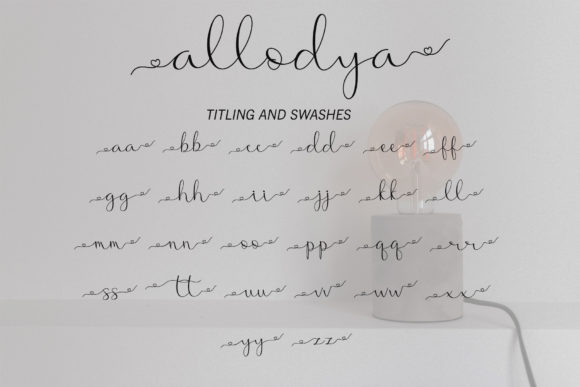 allodya
TITLING AND SWASHES
aa bb cc dd ee ff
gg hh ii jj kk ll
mm nn oo pp qq rr
ss tt uu vv ww xx
yy zz